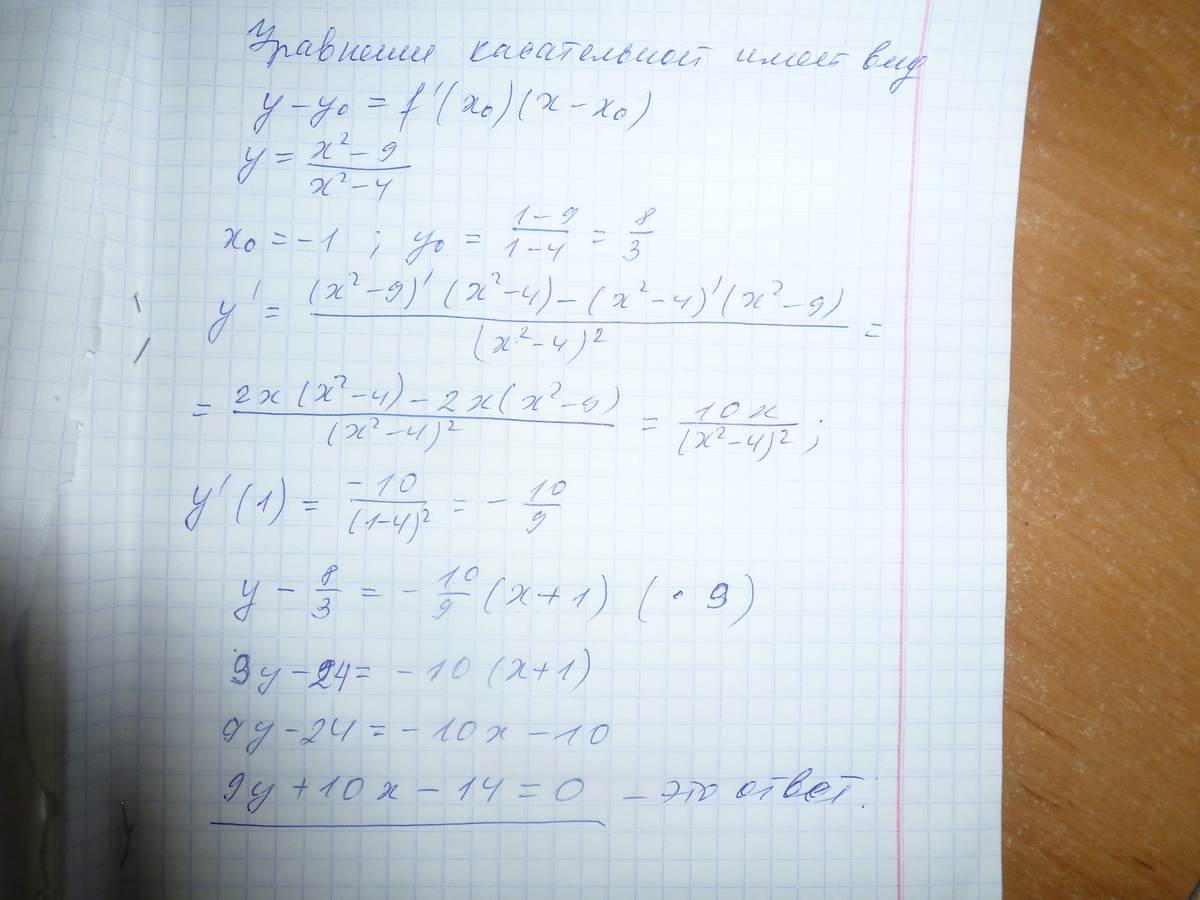 Уравнение касательной имеет вид
y - y₀ = f'(x₀)(x - x₀)
y = (x² - 9)/(x² - 4)
x₀ = -1 ; y₀ = (1 - 9)/(1 - 4) = 8/3
y' = ((x² - 9)'(x² - 4) - (x² - 4)'(x² - 9))/(x² - 4)² =
= (2x(x² - 4) - 2x(x² - 9))/(x² - 4)² = 10x/(x² - 4)² ;
y'(1) = -10/(1 - 4)² = - 10/9
y - 8/3 = - 10/9 (x + 1) (· 9)
9y - 24 = -10 (x + 1)
9y - 24 = -10x - 10
9y + 10x - 14 = 0 - это ответ.